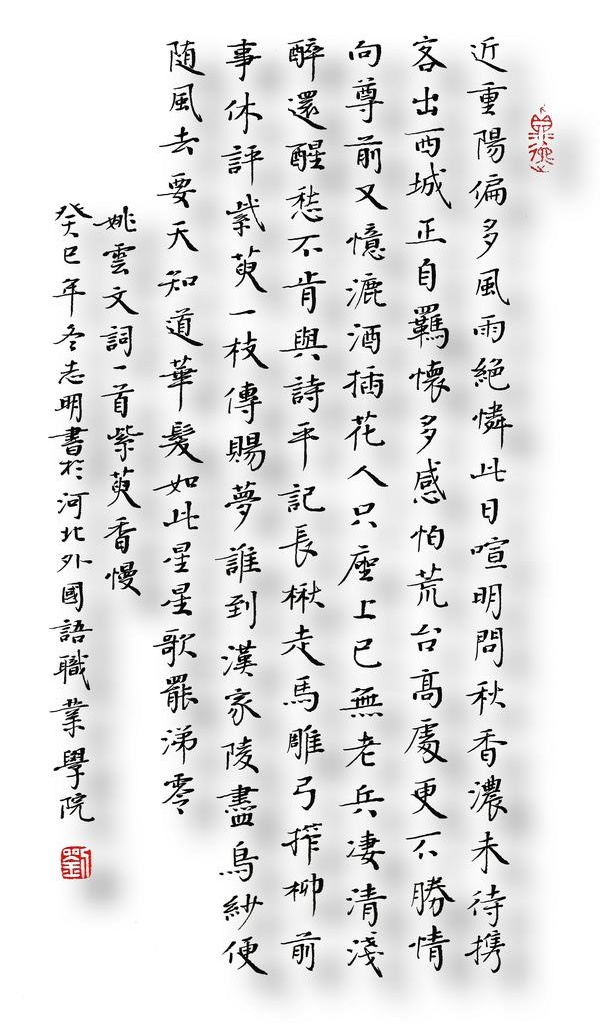 近重陽偏多風雨絕憐此日喧明問秋香濃未待携
客出西城正自羈懷多感怕荒台高處更不勝情
向尊前又憶漉酒插花人只座上已無老兵凄清淺
醉還醒愁不肯與詩平記長楸走馬雕弓搾柳前
事休評紫萸一枝傳賜夢誰到漢家陵盡烏紗便
随風去要天知道華髮如此星星歌罷涕零
姚雲文詞一首紫萸香慢
癸巳年冬志明書於河北外國語職業學院
劉